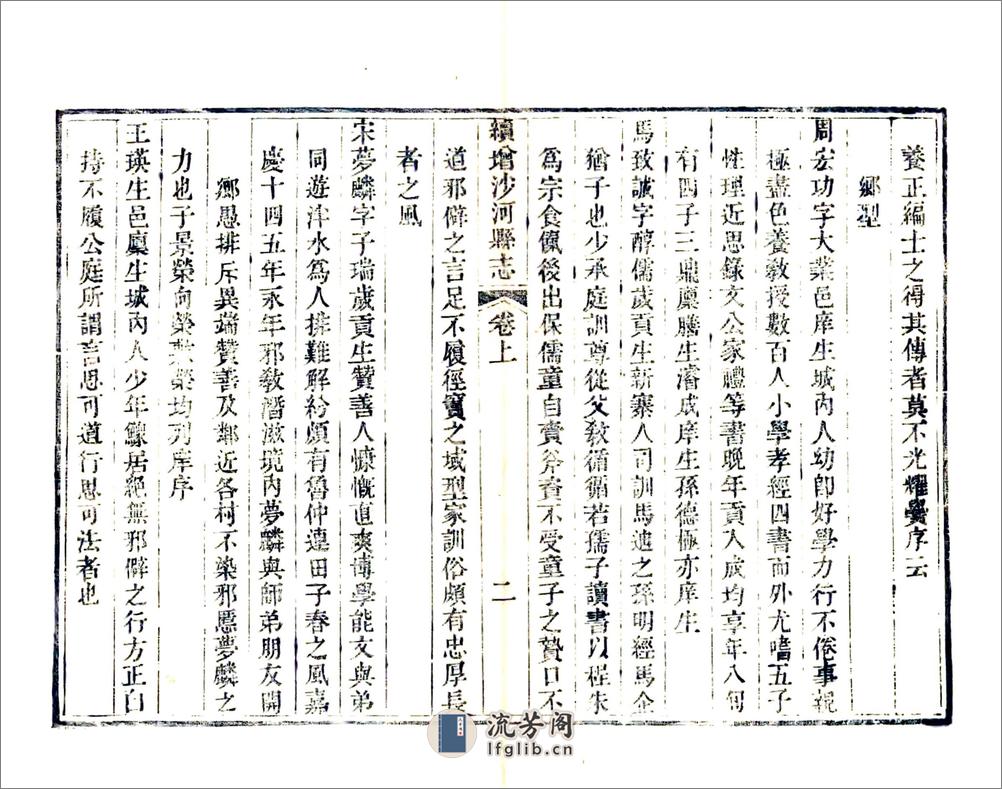 養正編士之得其傳者莫不光耀黌序云
鄉型
周宏功字大業邑庠生城內人幼卽好學力行不倦事親
極盡色養敎授數百人小學孝經四書而外尤嗜五子
性理近思錄文公家禮等書晚年貢入成均享年八旬
有四子三鼎廩膳生濬成庠生孫德極亦庠生
馬致誠字醇儒歲貢生新寨人司訓馬逑之孫明經馬企
猶子也少承庭訓尊從父敎循循若孺子讀書以程朱
爲宗食餼後出保儒童自賣斧賚不受童子之贄口不
續增沙河縣志
卷上
二
道邪僻之言足不履徑竇之域型家訓俗頗有忠厚長
者之風
宋夢麟字子瑞歲貢生贊善人慷慨直爽博學能文與弟
同遊泮水爲人排難解紛頗有魯仲連田子春之風嘉
慶十四五年永年邪敎潛滋境內夢麟與師弟朋友開
鄉愚排斥異端贊善及鄰近各村不染邪慝夢麟之
力也子景榮向榮棻榮均列庠序
王瑛生邑廩生城內人少年鰥居絕無邪僻之行方正自
持不履公庭所謂言思可道行思可法者也
流芳阁
lfglib.cn